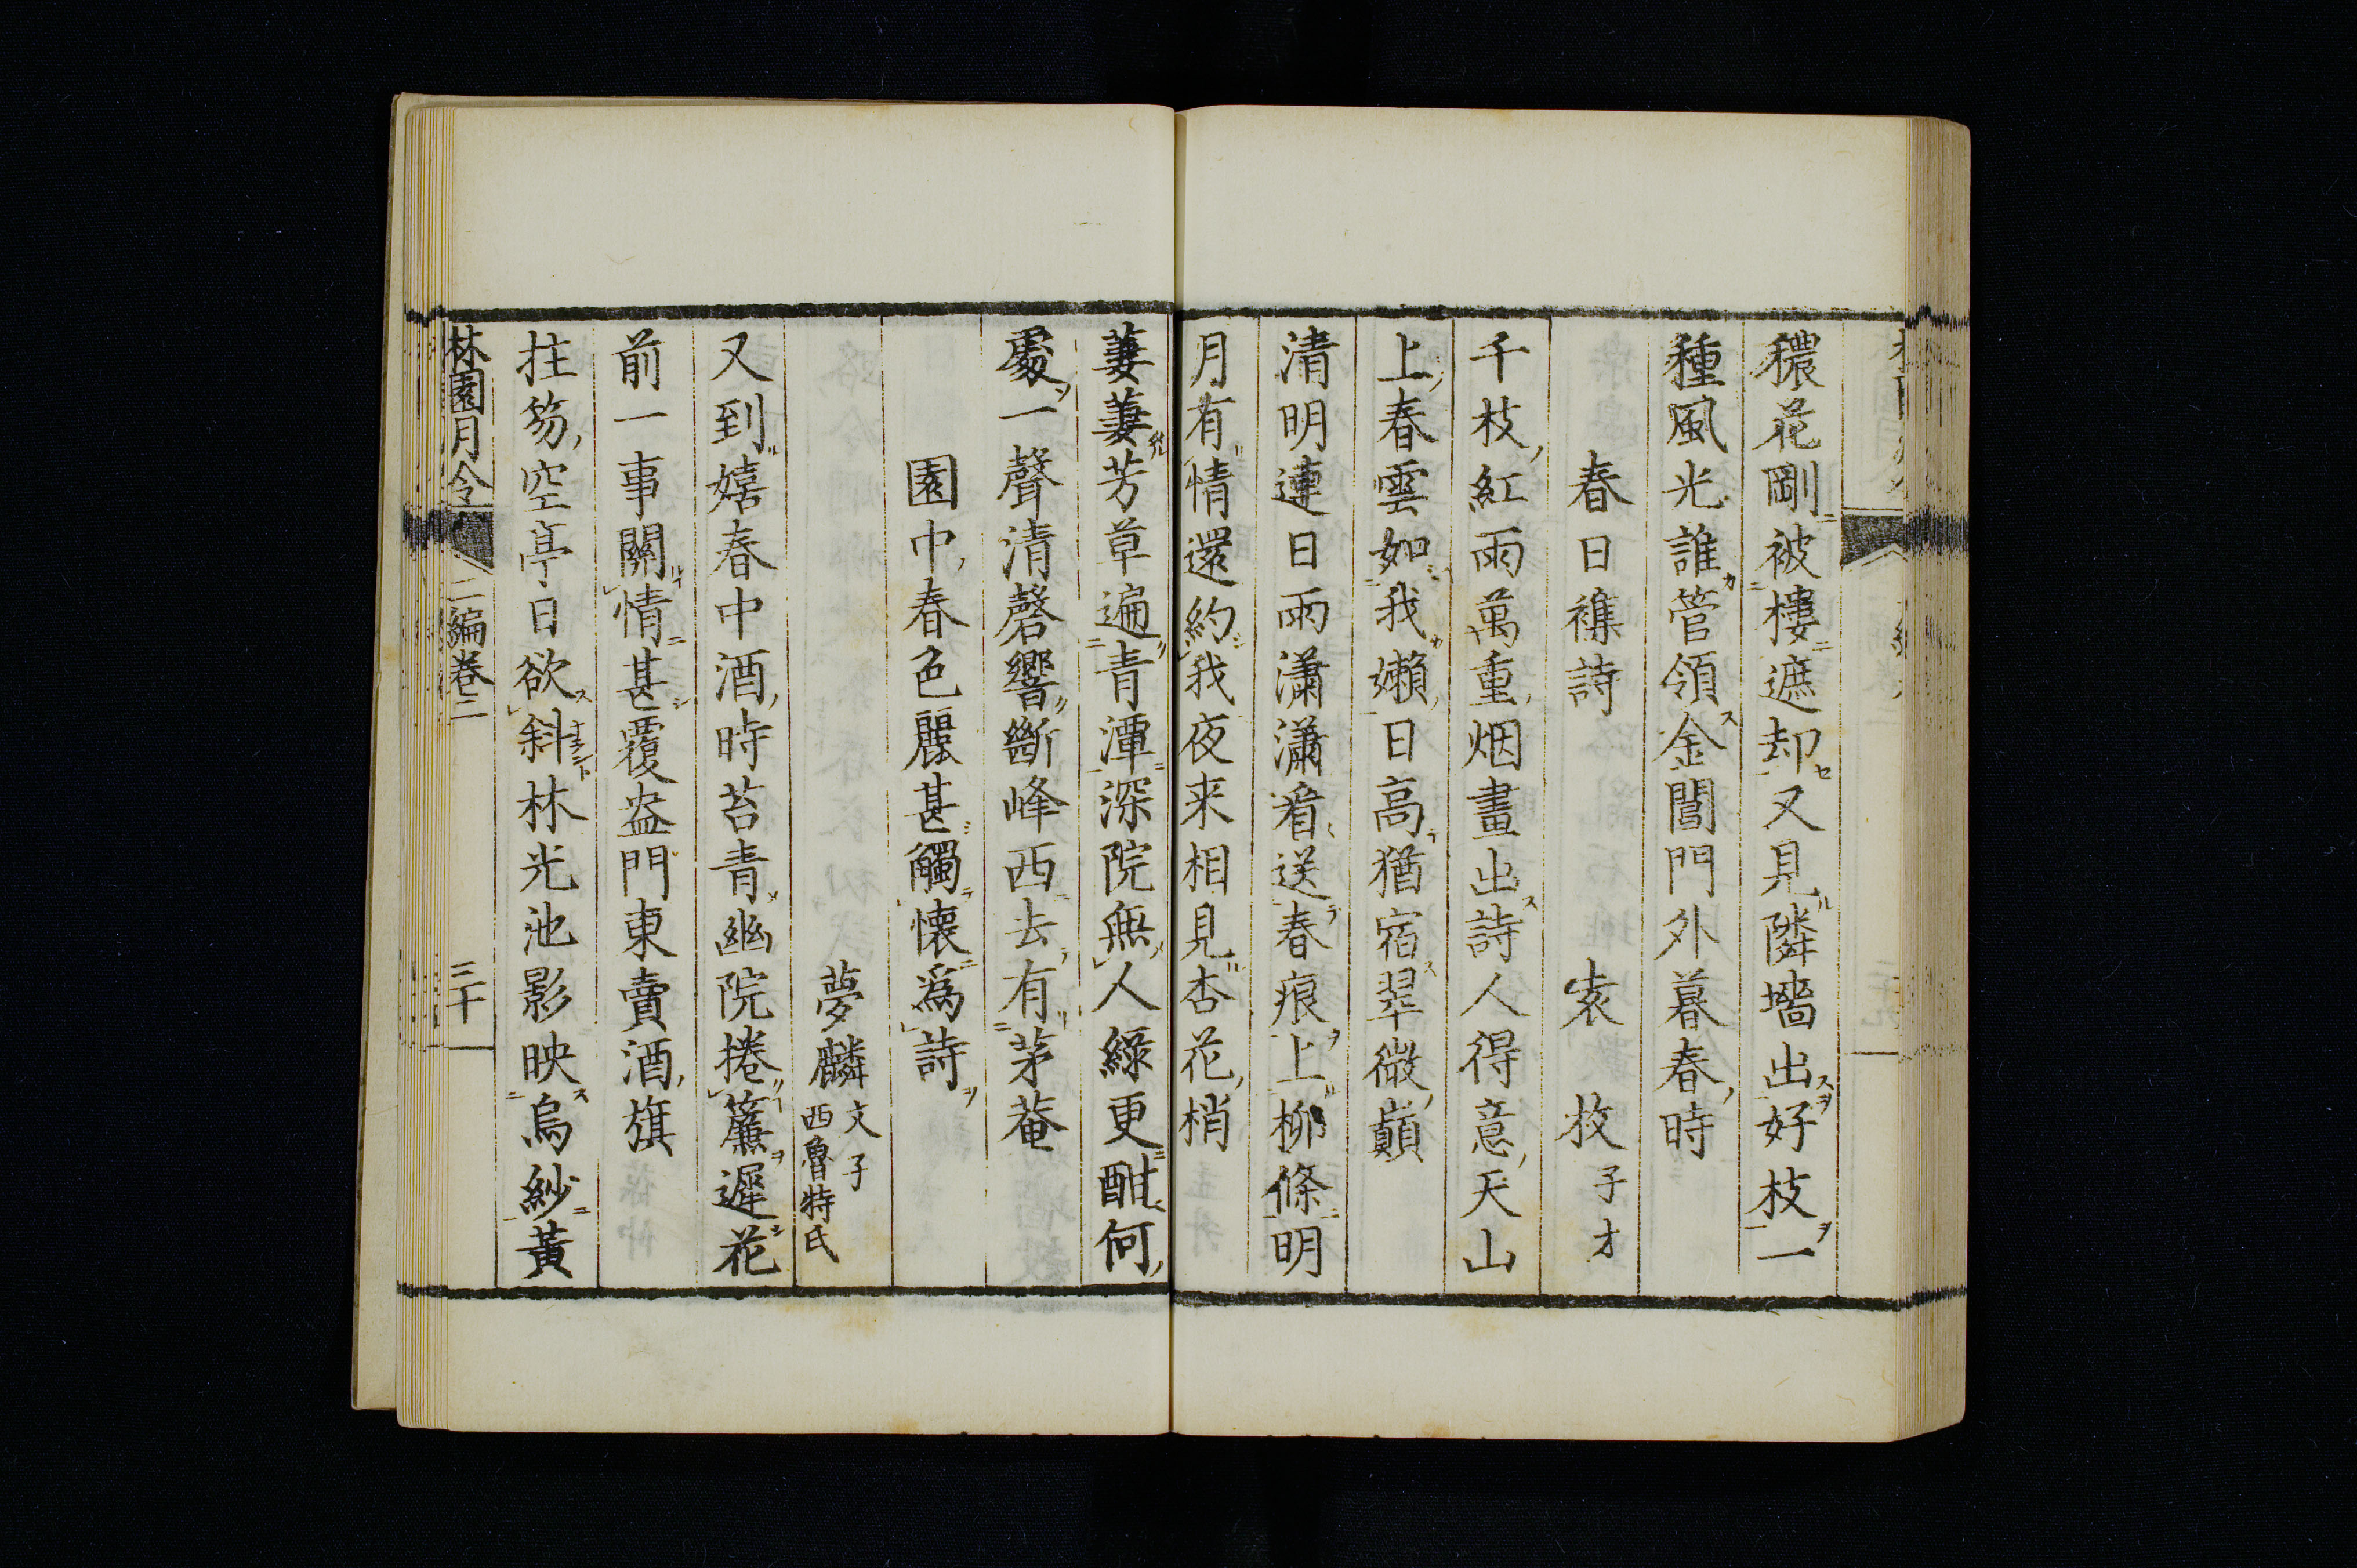 穠花剛被樓遮却又見隣墻出好枝一
種風光誰管領金閶門外暮春時
春日襍詩 袁枚 子才
千枝紅雨萬重烟畫出詩人得意天山
上春雲如我嬾日高猶宿翠微巓
清明連日雨瀟瀟看送春痕上柳條明
月有情還約我夜来相見杏花梢
萋萋芳草遍青潭深院無人綠更酣何
處一聲清磬響斷峰西去有茅菴
園中春色麗甚觸懷爲詩
夢麟 文子 西魯特氏
又到嬉春中酒時苔青幽院捲簾遲花
前一事關情甚覆盎門東賣酒旗
拄笏空亭日欲斜林光池影映烏紗黃
林園月令 二編卷二 三十